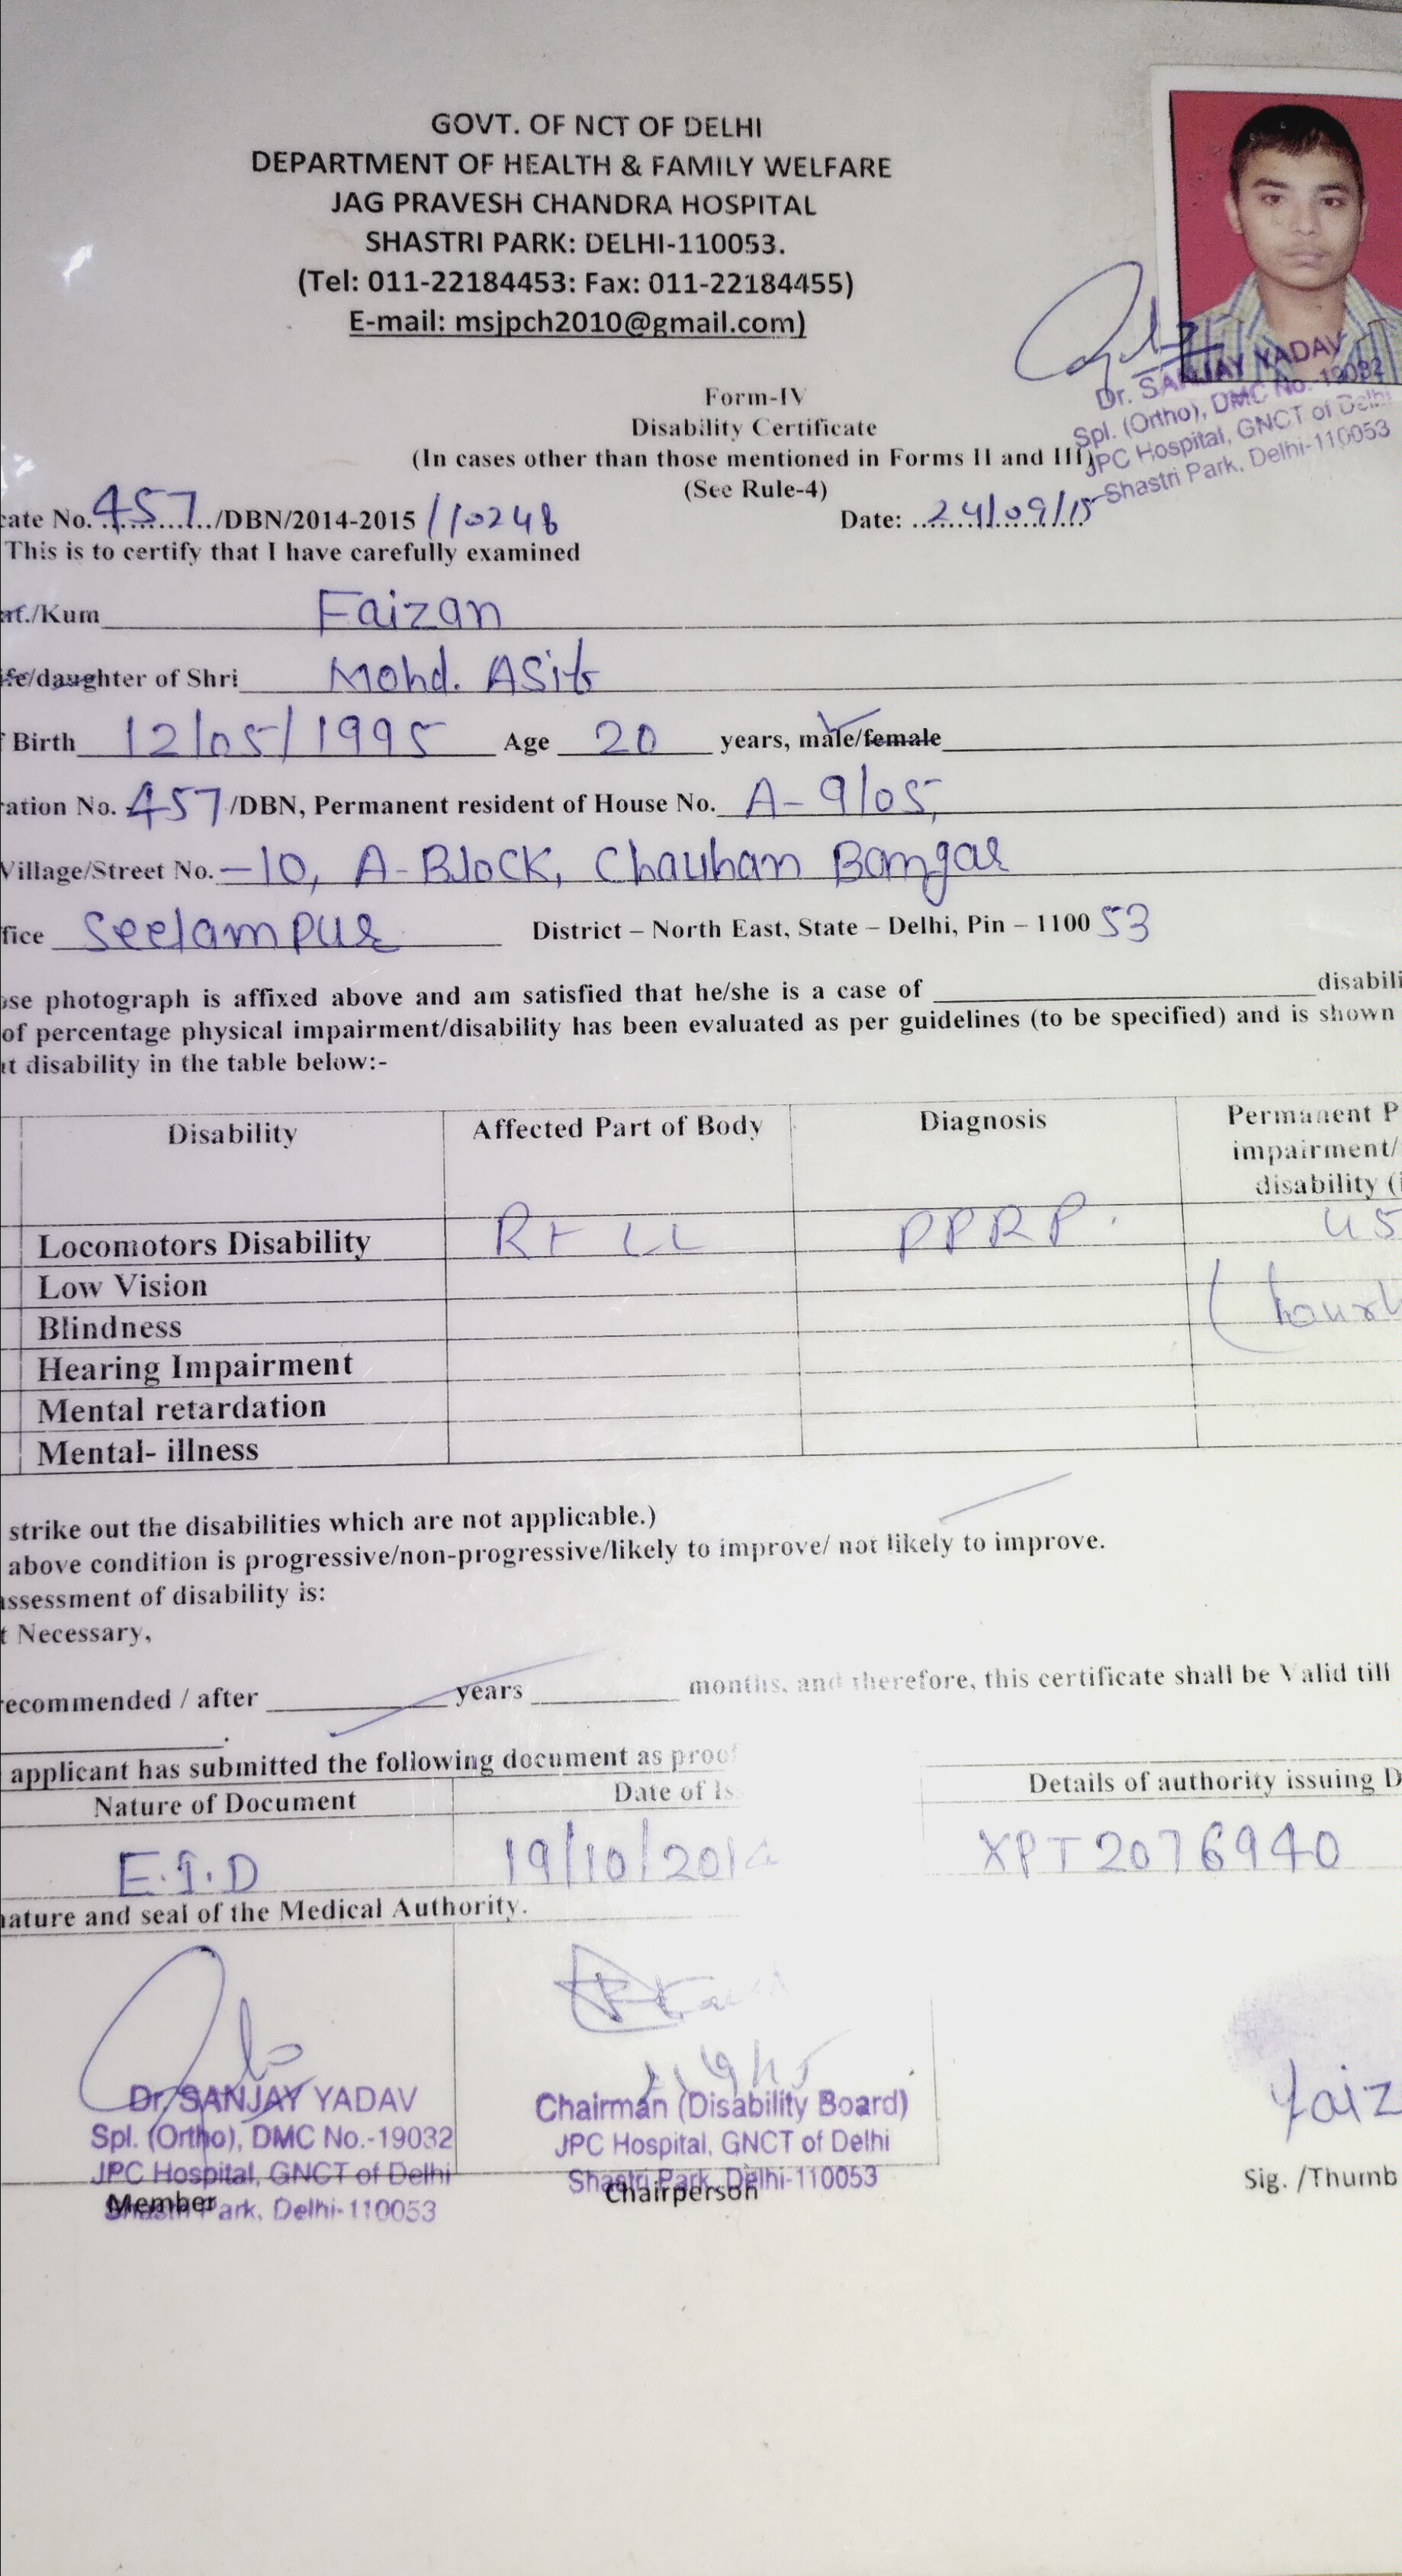 GOVT. OF NCT OF DELHI
DEPARTMENT OF HEALTH & FAMILY WELFARE
JAG PRAVESH CHANDRA HOSPITAL
SHASTRI PARK: DELHI-110053.
(Tel: 011-22184453: Fax: 011-22184455)
E-mail: msjpch2010@gmail.com)
Dr. SANJAY YADAV
Spl. (Ortho), DMC No.-19032
JPC Hospital, GNCT of Delhi
Shastri Park, Delhi-110053
Form-IV
Disability Certificate
(In cases other than those mentioned in Forms II and III)
(See Rule-4)
cate No. 457 /DBN/2014-2015 /10248 Date: 24/09/15
This is to certify that I have carefully examined
/Kum Faizan
/daughter of Shri Mohd. ASif
Birth 12/05/1995 Age 20 years, male/female
ation No. 457 /DBN, Permanent resident of House No. A-9/05,
Village/Street No. -10, A-Block, Chauhan Bangar
fice Seelampur District – North East, State – Delhi, Pin – 1100 53
ose photograph is affixed above and am satisfied that he/she is a case of disabili
of percentage physical impairment/disability has been evaluated as per guidelines (to be specified) and is shown
disability in the table below:-
Disability Affected Part of Body Diagnosis Permanent P
impairment/
disability (
Locomotors Disability Rt LL PPRP. 45
Low Vision
Blindness
Hearing Impairment
Mental retardation
Mental- illness
strike out the disabilities which are not applicable.)
above condition is progressive/non-progressive/likely to improve/ not likely to improve.
assessment of disability is:
t Necessary,
ecommended / after years months, and therefore, this certificate shall be Valid till
applicant has submitted the following document as proof
Nature of Document Date of Is Details of authority issuing D
E.I.D 19/10/2014 XPT2076940
nature and seal of the Medical Authority.
Dr. SANJAY YADAV
Spl. (Ortho), DMC No.-19032
JPC Hospital, GNCT of Delhi
Shastri Park, Delhi-110053
Member
Chairman (Disability Board)
JPC Hospital, GNCT of Delhi
Shastri Park, Delhi-110053
Chairperson
Faiz
Sig. /Thumb